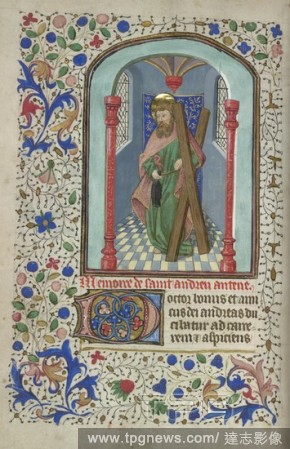 Memoire de saint andrieu antene.
Doctor bonus et ami
cus dei andreas du
citatur ad cruce
rem & aspiciens
www.tpgnews.com/ 達志影像